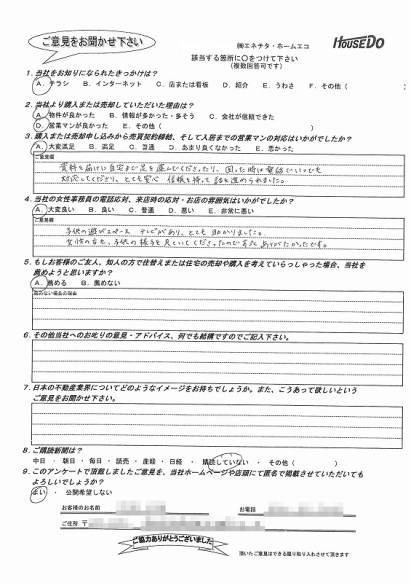 ご意見をお聞かせ下さい
㈱エネチタ・ホームエコ
HOUSEDO
該当する箇所に○をつけて下さい
(複数回答可です)
1. 当社をお知りになられたきっかけは?
A. チラシ B. インターネット C. 店または看板 D. 紹介 E. うわさ F. その他( )
2. 当社より購入または売却していただいた理由は?
A. 物件が良かった B. 情報が多かった・多そう C. 会社が信頼できた
D. 営業マンが良かった E. その他( )
3. 購入または売却申し込みから売買契約締結、そして入居までの営業マンの対応はいかがでしたか?
A. 大変満足 B. 満足 C. 普通 D. あまり良くなかった E. 悪かった
ご意見欄
資料を届けに自宅まで足を運んでくださったり、困った時は電話でいつでも
対応してくださり、とても安心、信頼を持って話を進められました。
4. 当社の女性事務員の電話応対、来店時の応対・お店の雰囲気はいかがでしたか?
A. 大変良い B. 良い C. 普通 D. 悪い E. 非常に悪い
ご意見欄
子供の遊びスペース、テレビがあり、とても助かりました。
女性の方も、子供の様子を見ていてくださったので大変ありがたかったです。
5. もしお客様のご友人、知人の方で住替えまたは住宅の売却や購入を考えていらっしゃった場合、当社を
薦めようと思いますか?
A. 薦める B. 薦めない
薦めない場合の理由
6. その他当社へのお叱りの意見・アドバイス、何でも結構ですのでご記入下さい。
7. 日本の不動産業界についてどのようなイメージをお持ちでしょうか。また、こうあって欲しいという
ご意見をお聞かせ下さい。
8. ご購読新聞は?
中日 ・ 朝日 ・ 毎日 ・ 読売 ・ 産経 ・ 日経 ・ 購読していない ・ その他( )
9. このアンケートで頂戴しましたご意見を、当社ホームページや店頭にて匿名で掲載させていただいても
よろしいでしょうか?
はい ・ 公開希望しない
お客様のお名前 お電話
ご住所 〒
ご協力ありがとうございました
頂いたご意見はできる限り取り入れさせて頂きます